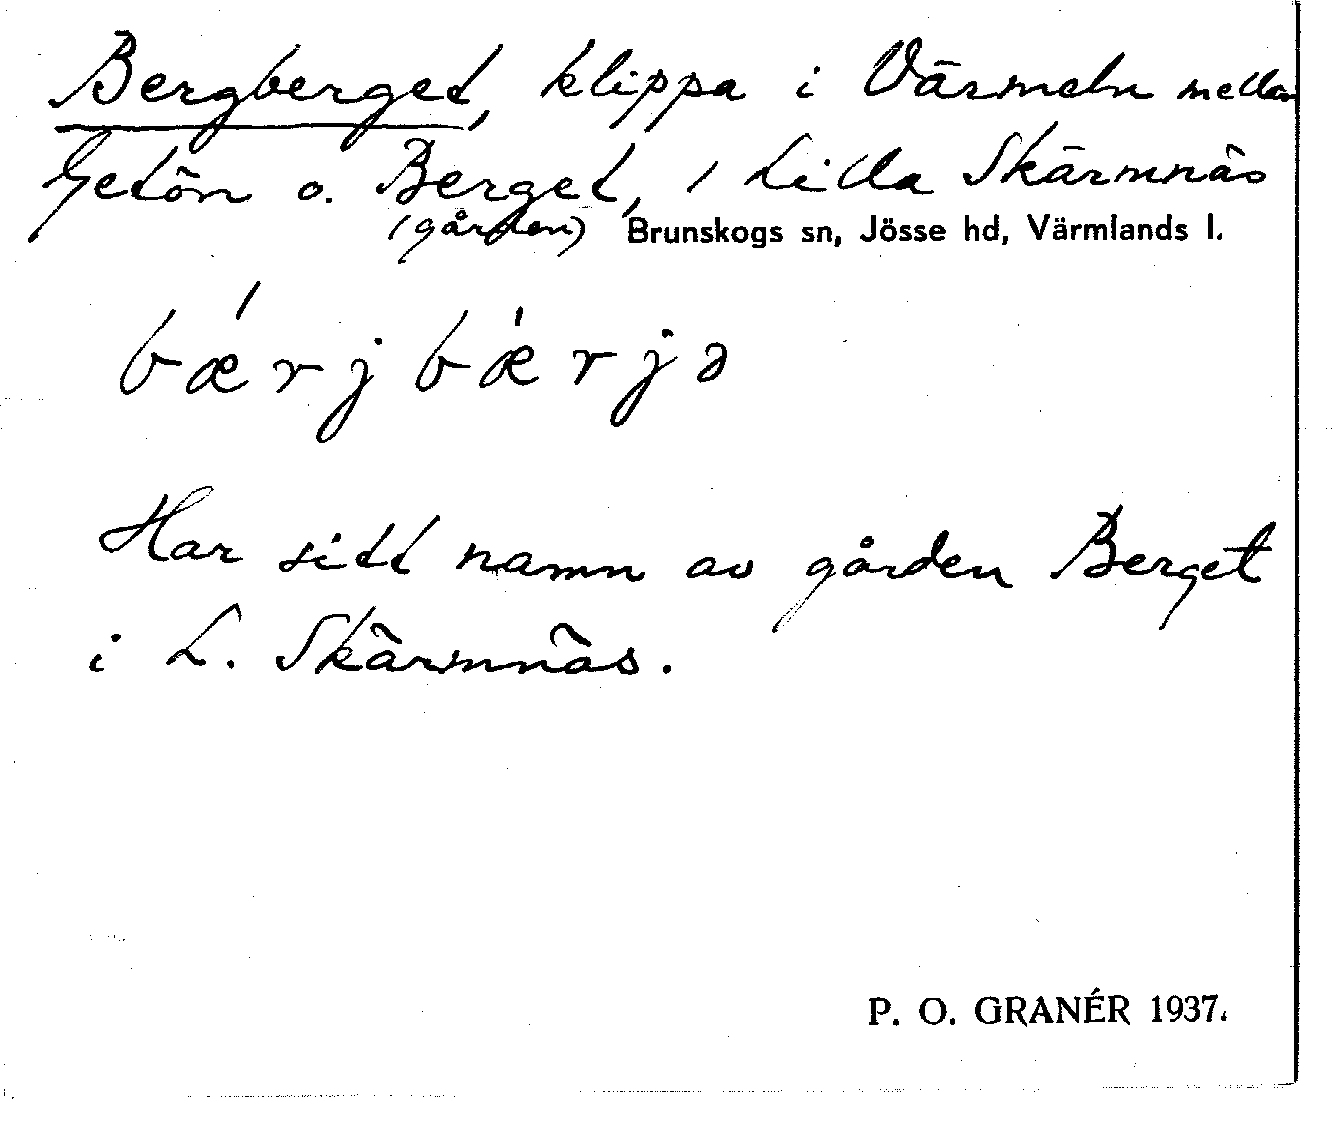 Bergberget, klippa i Värmeln mellan
Getön o. Berget, / Lilla Skärmnäs
(gården) Brunskogs sn, Jösse hd, Värmlands l.
bǽrjbǽrjə
Har sitt namn av gården Berget
i L. Skärmnäs.
P. O. GRANÉR 1937.